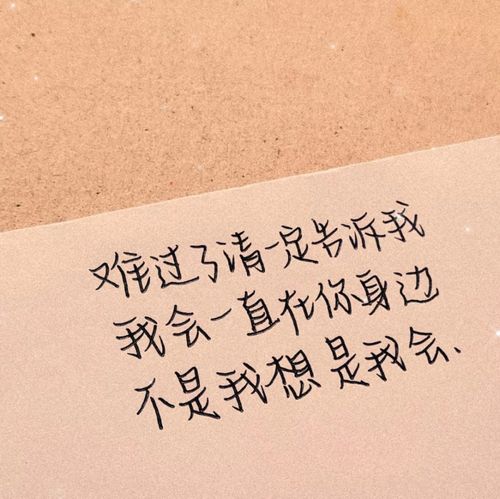 难过了清一定告诉我
我会一直在你身边
不是我想是我会、